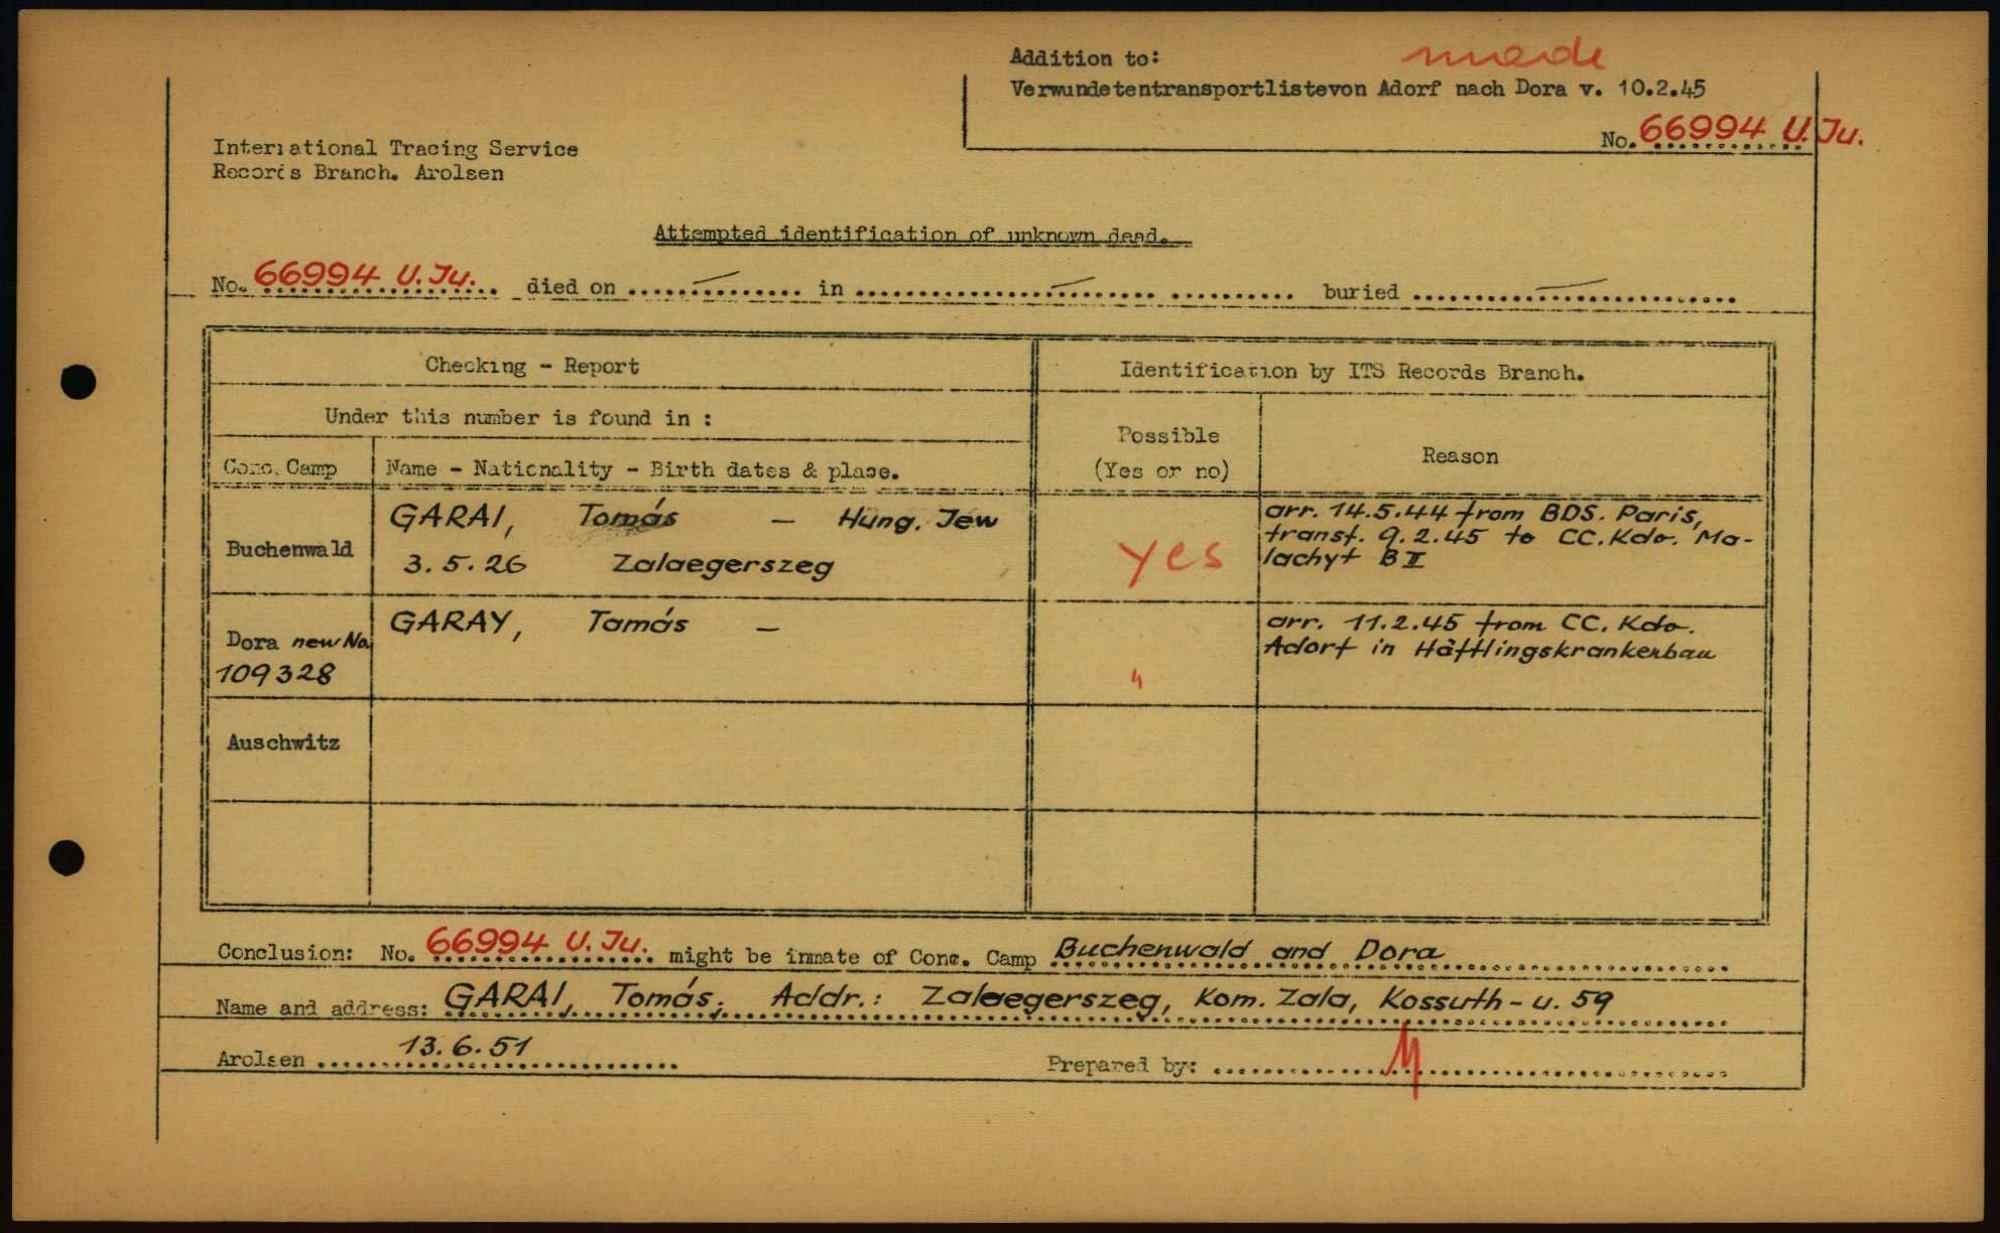 Addition to: made
Verwundetentransportlistevon Adorf nach Dora v. 10.2.45
No. 66994 U.Ju.
International Tracing Service
Records Branch. Arolsen
Attempted identification of unknown dead.
No. 66994 U.Ju. died on — in — buried —
Checking - Report
Identification by ITS Records Branch.
Under this number is found in :
Possible
(Yes or no)
Reason
Conc. Camp
Name - Nationality - Birth dates & place.
Buchenwald
GARAI, Tomás — Hung. Jew
3.5.26 Zalaegerszeg
yes
arr. 14.5.44 from BDS. Paris,
transf. 9.2.45 to CC. Kdo. Ma-
lachyt B II
Dora new No.
109328
GARAY, Tamás —
"
arr. 11.2.45 from CC. Kdo.
Adorf in Häftlingskrankenbau
Auschwitz
Conclusion: No. 66994 U.Ju. might be inmate of Conc. Camp Buchenwald and Dora
Name and address: GARAI, Tomás, Addr.: Zalaegerszeg, Kom. Zala, Kossuth-u. 59
Arolsen 13.6.51
Prepared by: